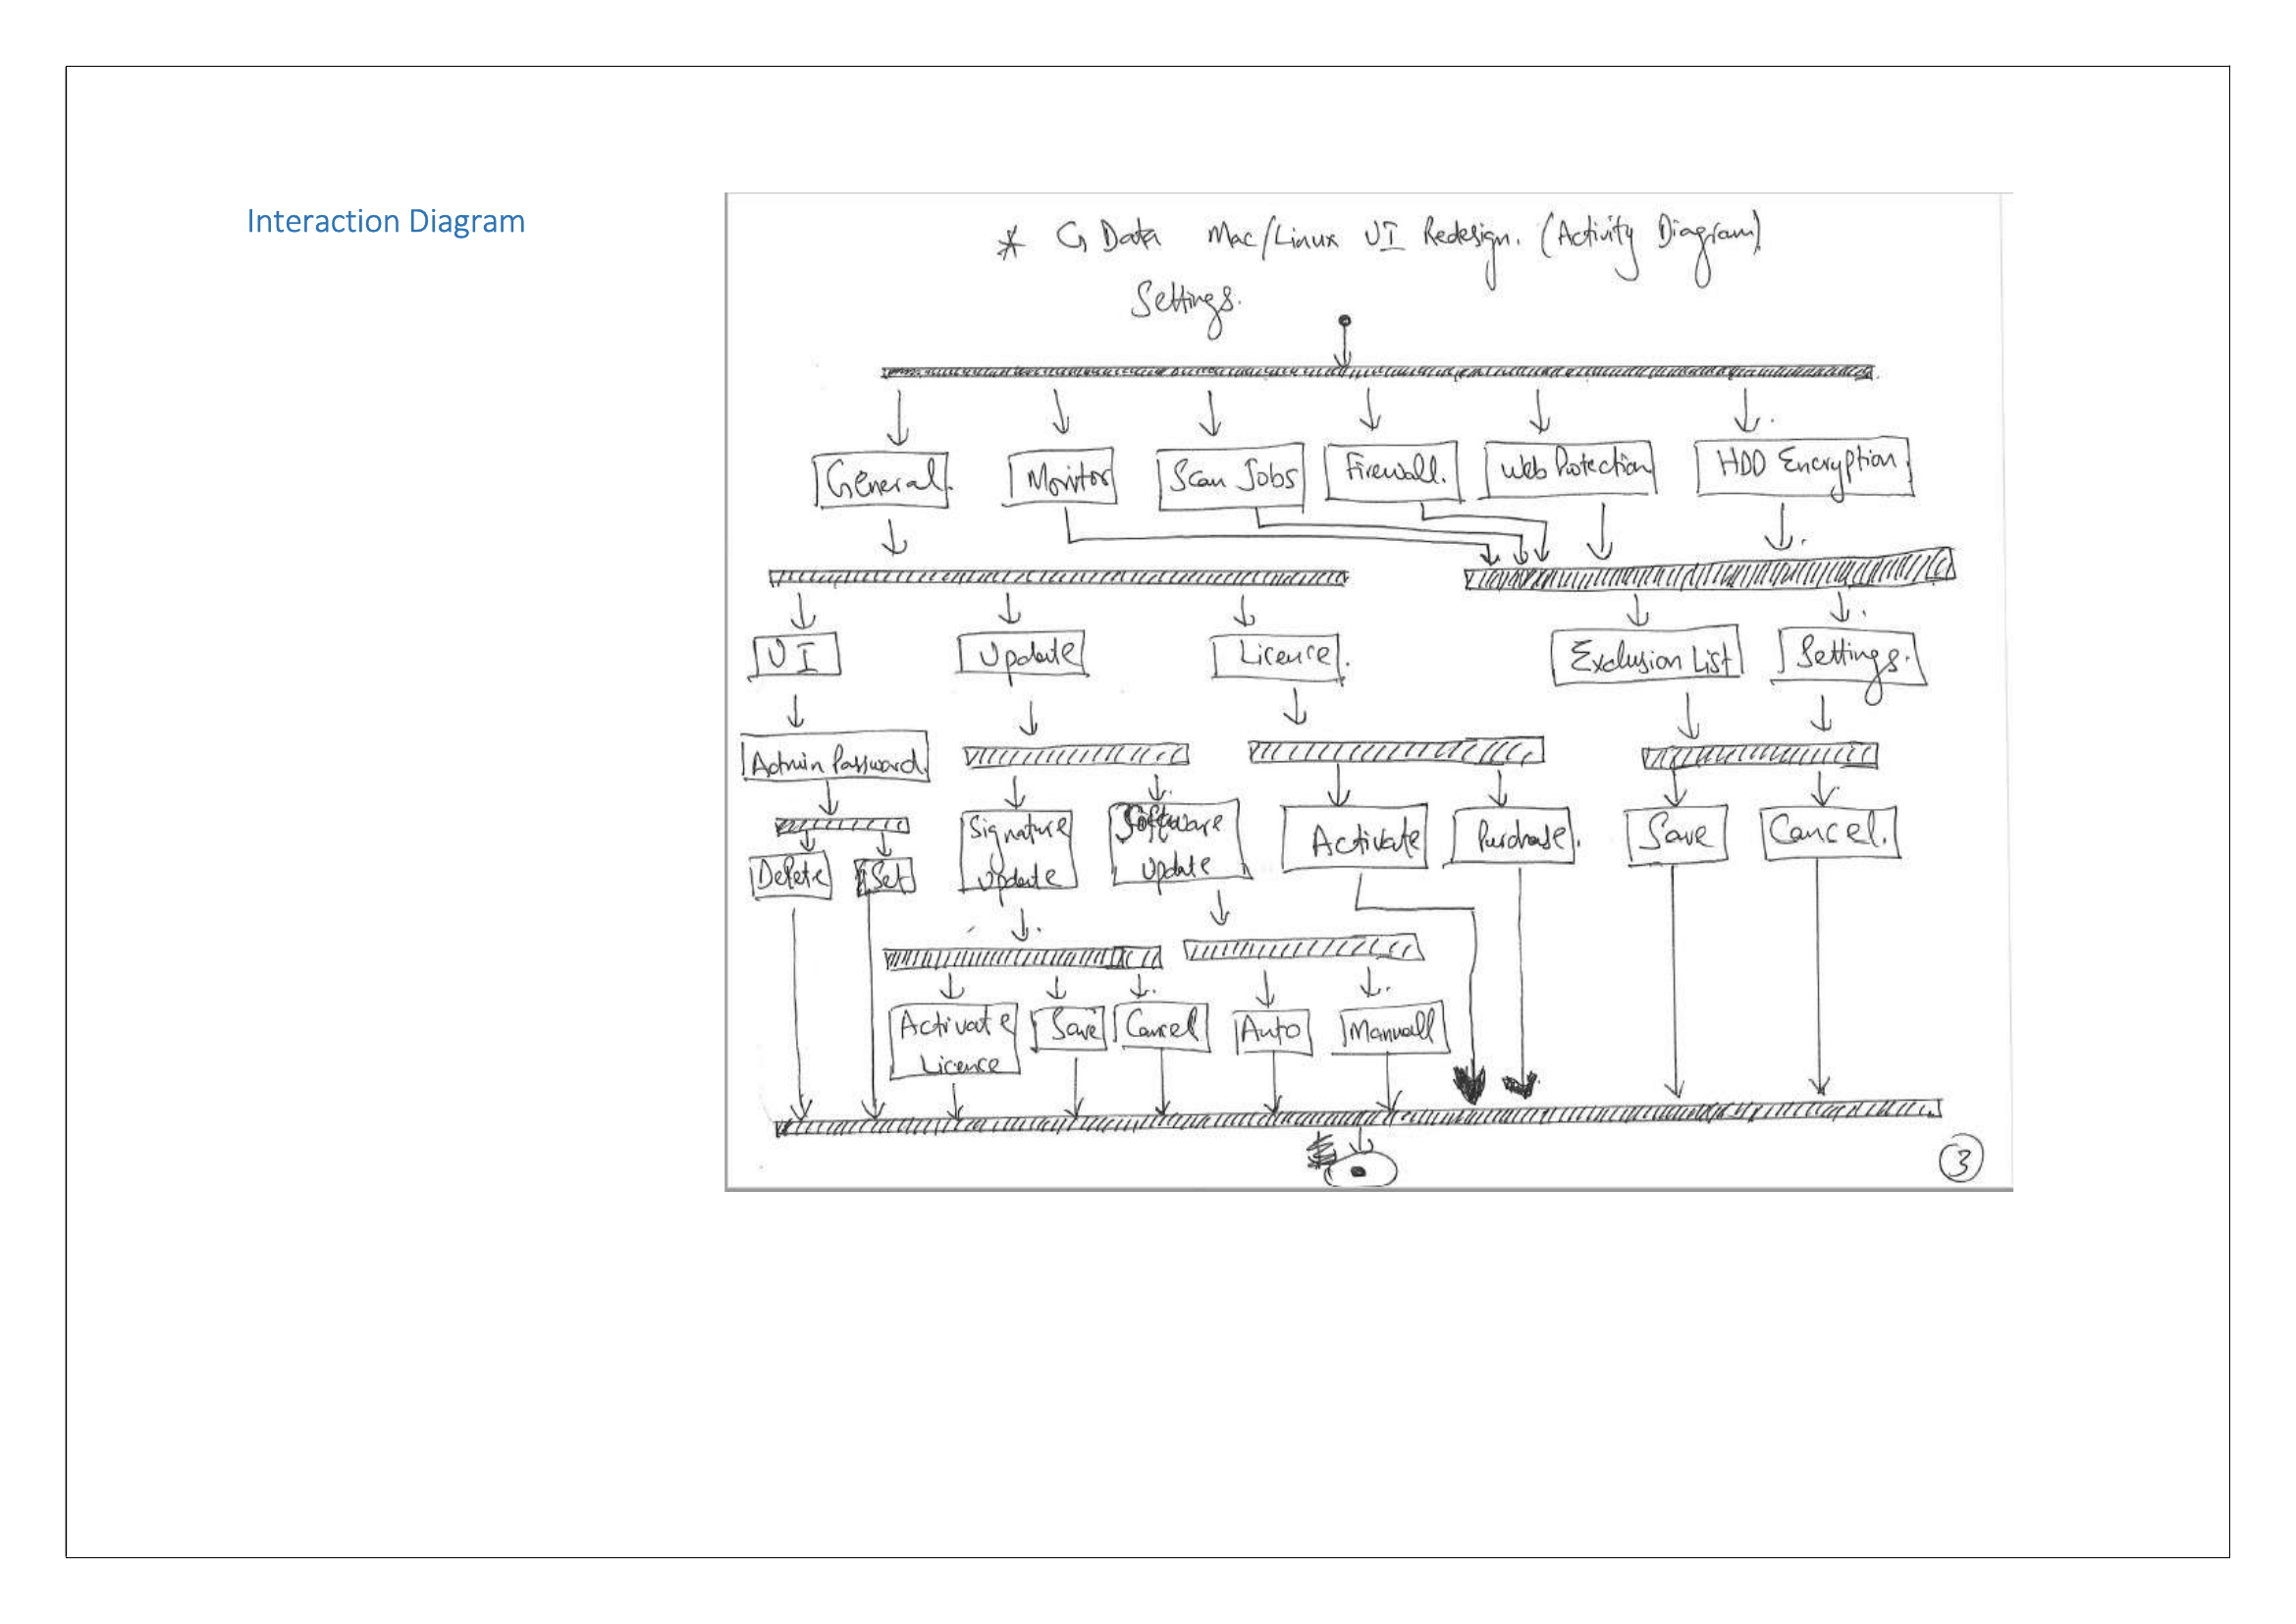 Interaction Diagram
* G Data Mac/Linux UI Redesign. (Activity Diagram)
Settings.
General.
Monitor
Scan Jobs
Firewall.
Web Protection
HDD Encryption.
UI
Update
Licence.
Exclusion List
Settings.
Admin Password.
Signature
Update
Software
Update
Activate
Purchase.
Save
Cancel.
Delete
Set
Activate
Licence
Save
Cancel
Auto
Manuall
3